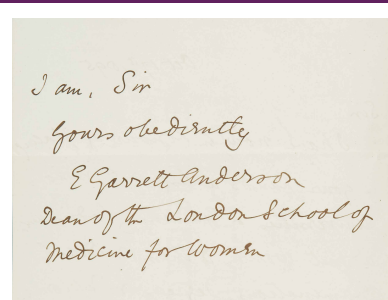 I am, Sir
yours obediently
E Garrett Anderson
Dean of the London School of
Medicine for Women